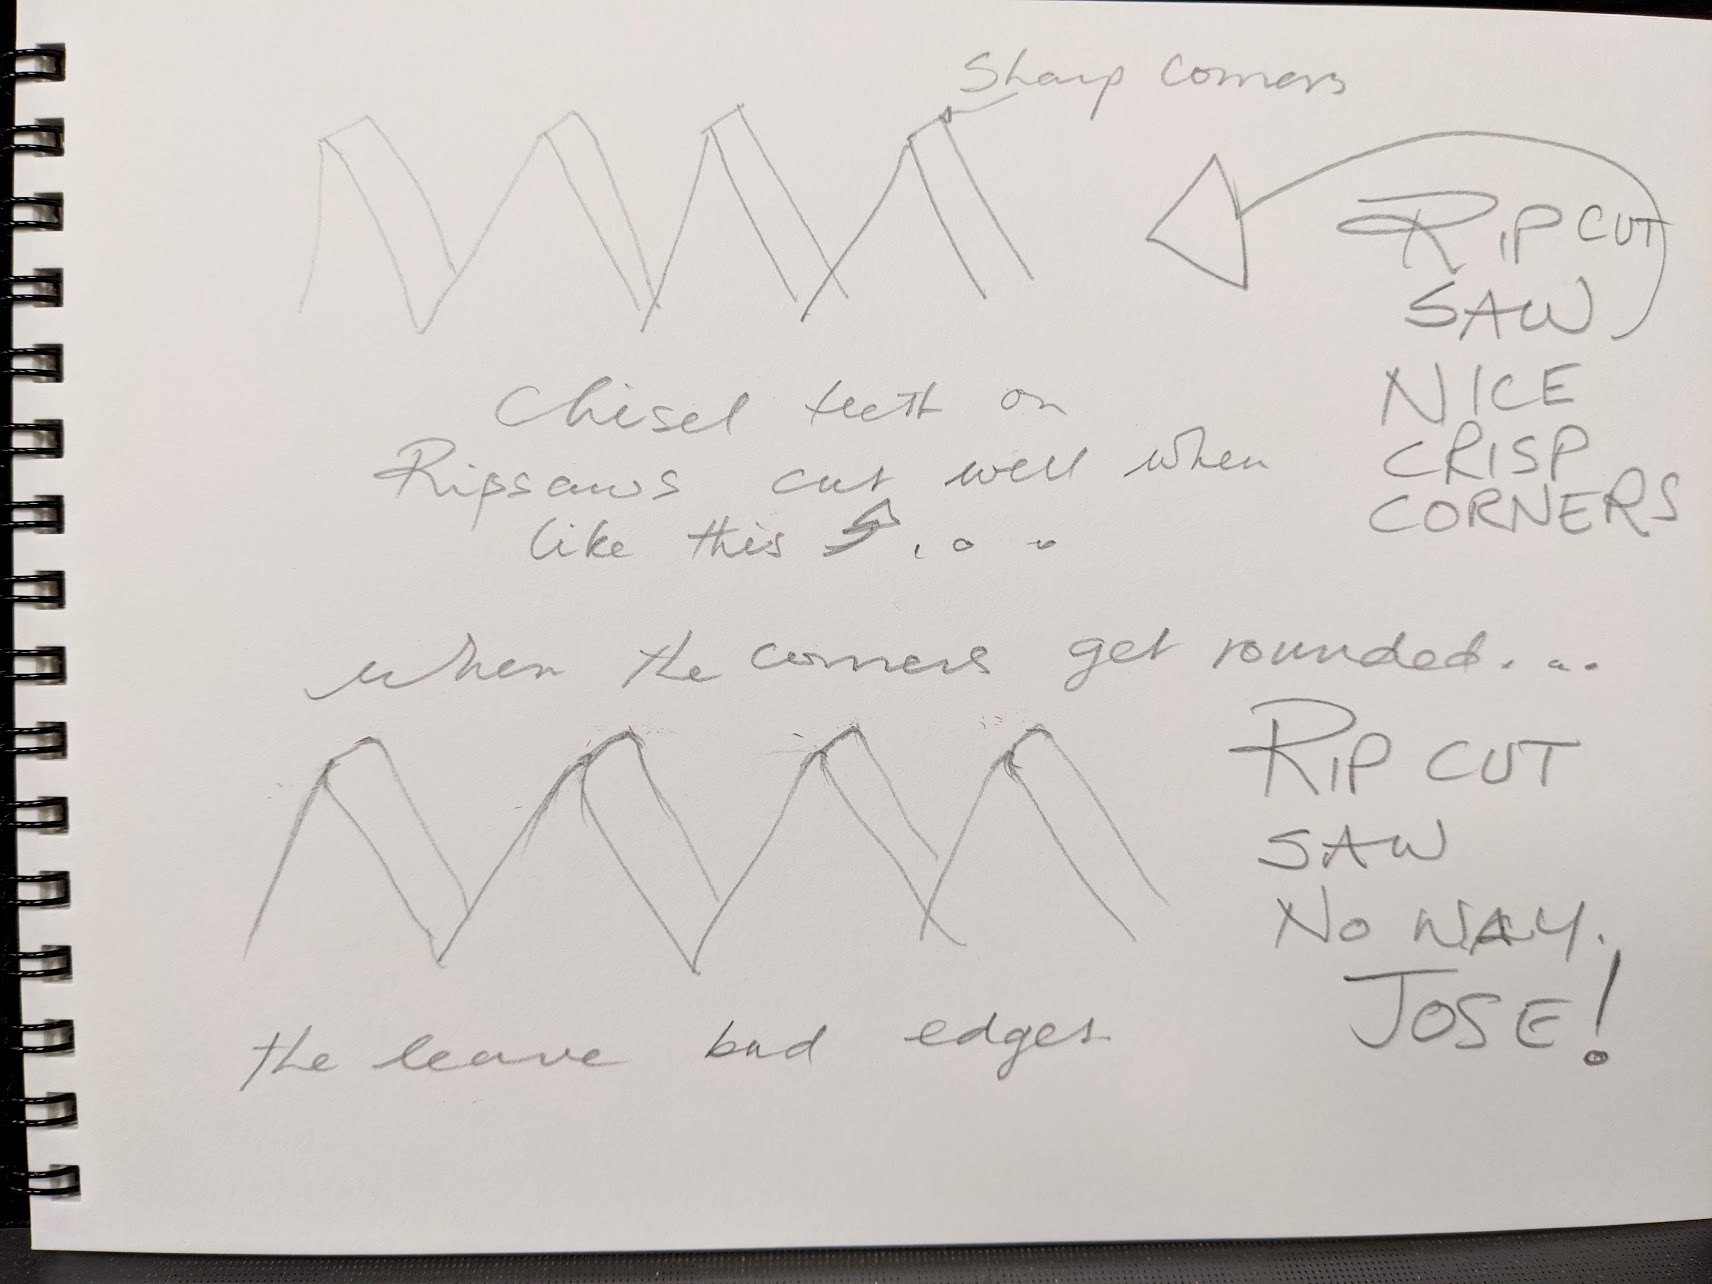 Sharp corners
RIP CUT
SAW
NICE
CRISP
CORNERS
Chisel teeth on
Ripsaws cut well when
like this . . .
when the corners get rounded...
RIP CUT
SAW
NO WAY.
JOSE!
the leave bad edges